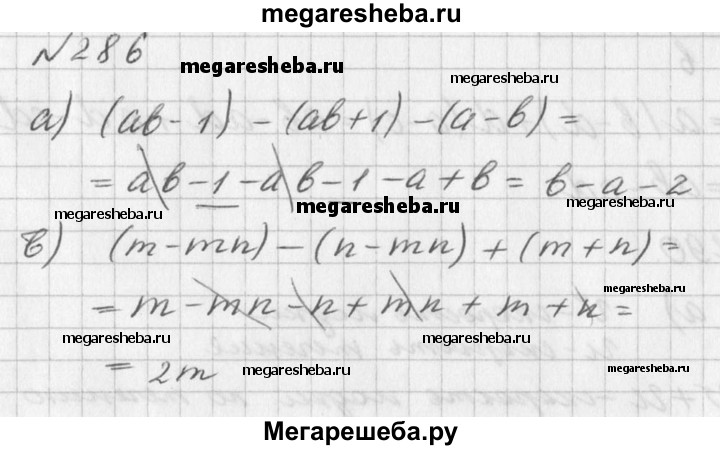 megaresheba.ru
№286
megaresheba.ru
megaresheba.ru
а) (ab-1)-(ab+1)-(a-b)=
= ab-1-ab-1-a+b = b-a-2
megaresheba.ru
megaresheba.ru
в) (m-mn)-(n-mn)+(m+n)=
megaresheba.ru
= m-mn-n+mn+m+n=
megaresheba.ru
megaresheba.ru
megaresheba.ru
= 2m
Мегарешеба.ру